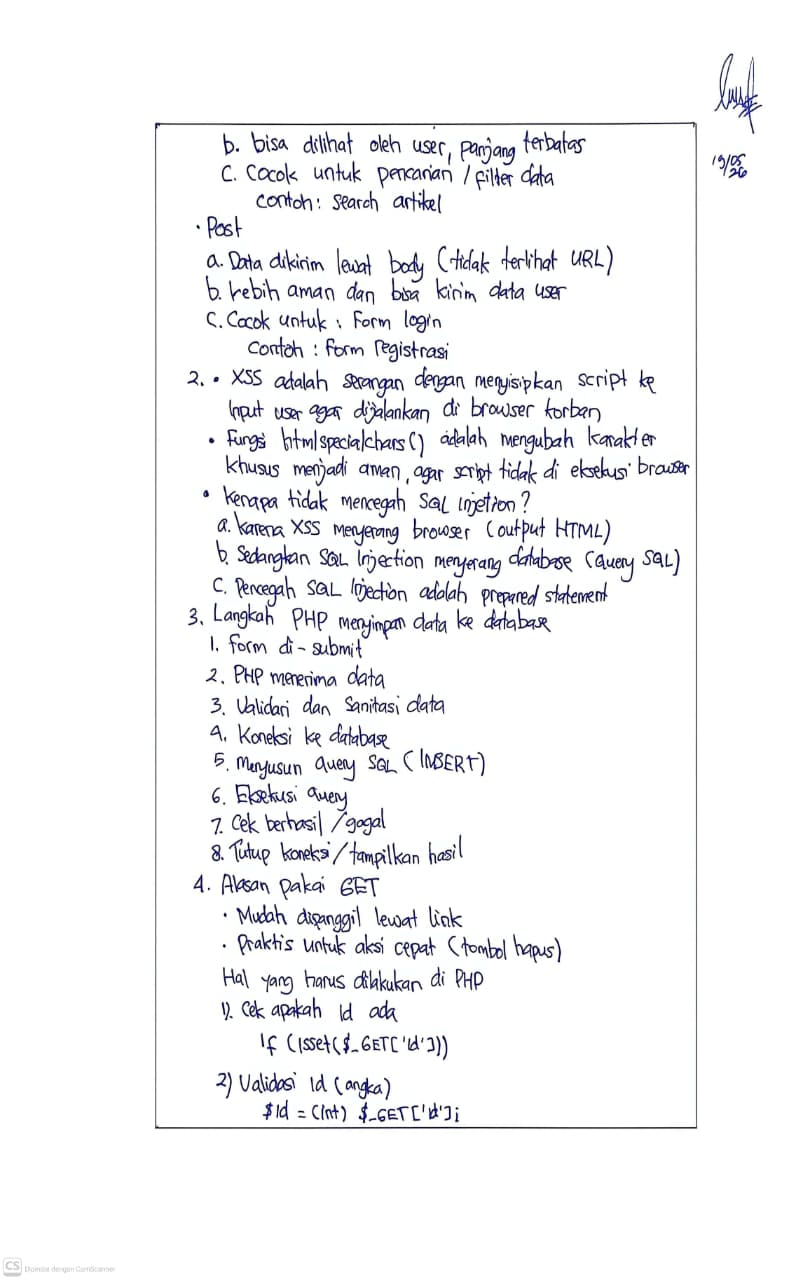 19/05
26
b. bisa dilihat oleh user, panjang terbatas
C. Cocok untuk pencarian / filter data
contoh: search artikel
• Post
a. Data dikirim lewat body (tidak terlihat URL)
b. Lebih aman dan bisa kirim data user
C. Cocok untuk : Form login
Contoh : Form registrasi
2. • XSS adalah serangan dengan menyisipkan script ke
Input user agar dijalankan di browser korban
• Fungsi htmlspecialchars() adalah mengubah karakter
khusus menjadi aman, agar script tidak di eksekusi browser
• Kenapa tidak mencegah SQL Injetion?
a. karena XSS menyerang browser (output HTML)
b. Sedangkan SQL Injection menyerang database (Query SQL)
C. Pencegah SQL Injection adalah prepared statement
3. Langkah PHP menyimpan data ke database
1. Form di-submit
2. PHP menerima data
3. Validari dan Sanitasi data
4. Koneksi ke database
5. Menyusun Query SQL (INSERT)
6. Eksekusi Query
7. Cek berhasil / gagal
8. Tutup koneksi / tampilkan hasil
4. Alasan pakai GET
• Mudah dipanggil lewat link
• Praktis untuk aksi cepat (tombol hapus)
Hal yang harus dilakukan di PHP
1). Cek apakah Id ada
If (Isset($_GET['id']))
2) Validasi Id (angka)
$Id = (Int) $_GET['id'];
CS Dipindai dengan CamScanner